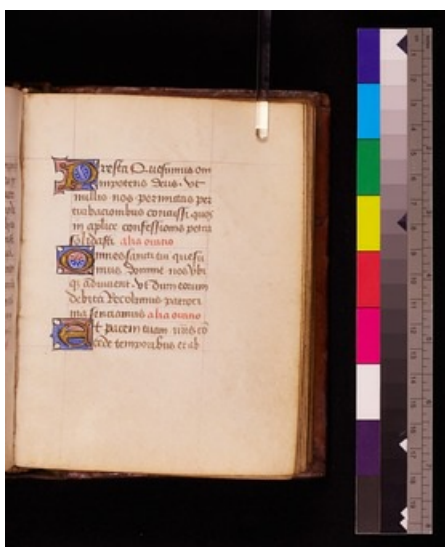 Presta Quesumus om
nipotens deus. Vt
nullis nos permittas per
turbacionibus concussi, quos
in aplice confessionis petra
solidasti alia oratio
Omnes sancti tui quesu
mus domine nos Vbi
qz adiuuent. Vt dum eorum
merita Recolimus patroci
nia senciamus alia oratio
Et pacem tuam nris co
cede temporibus et ab